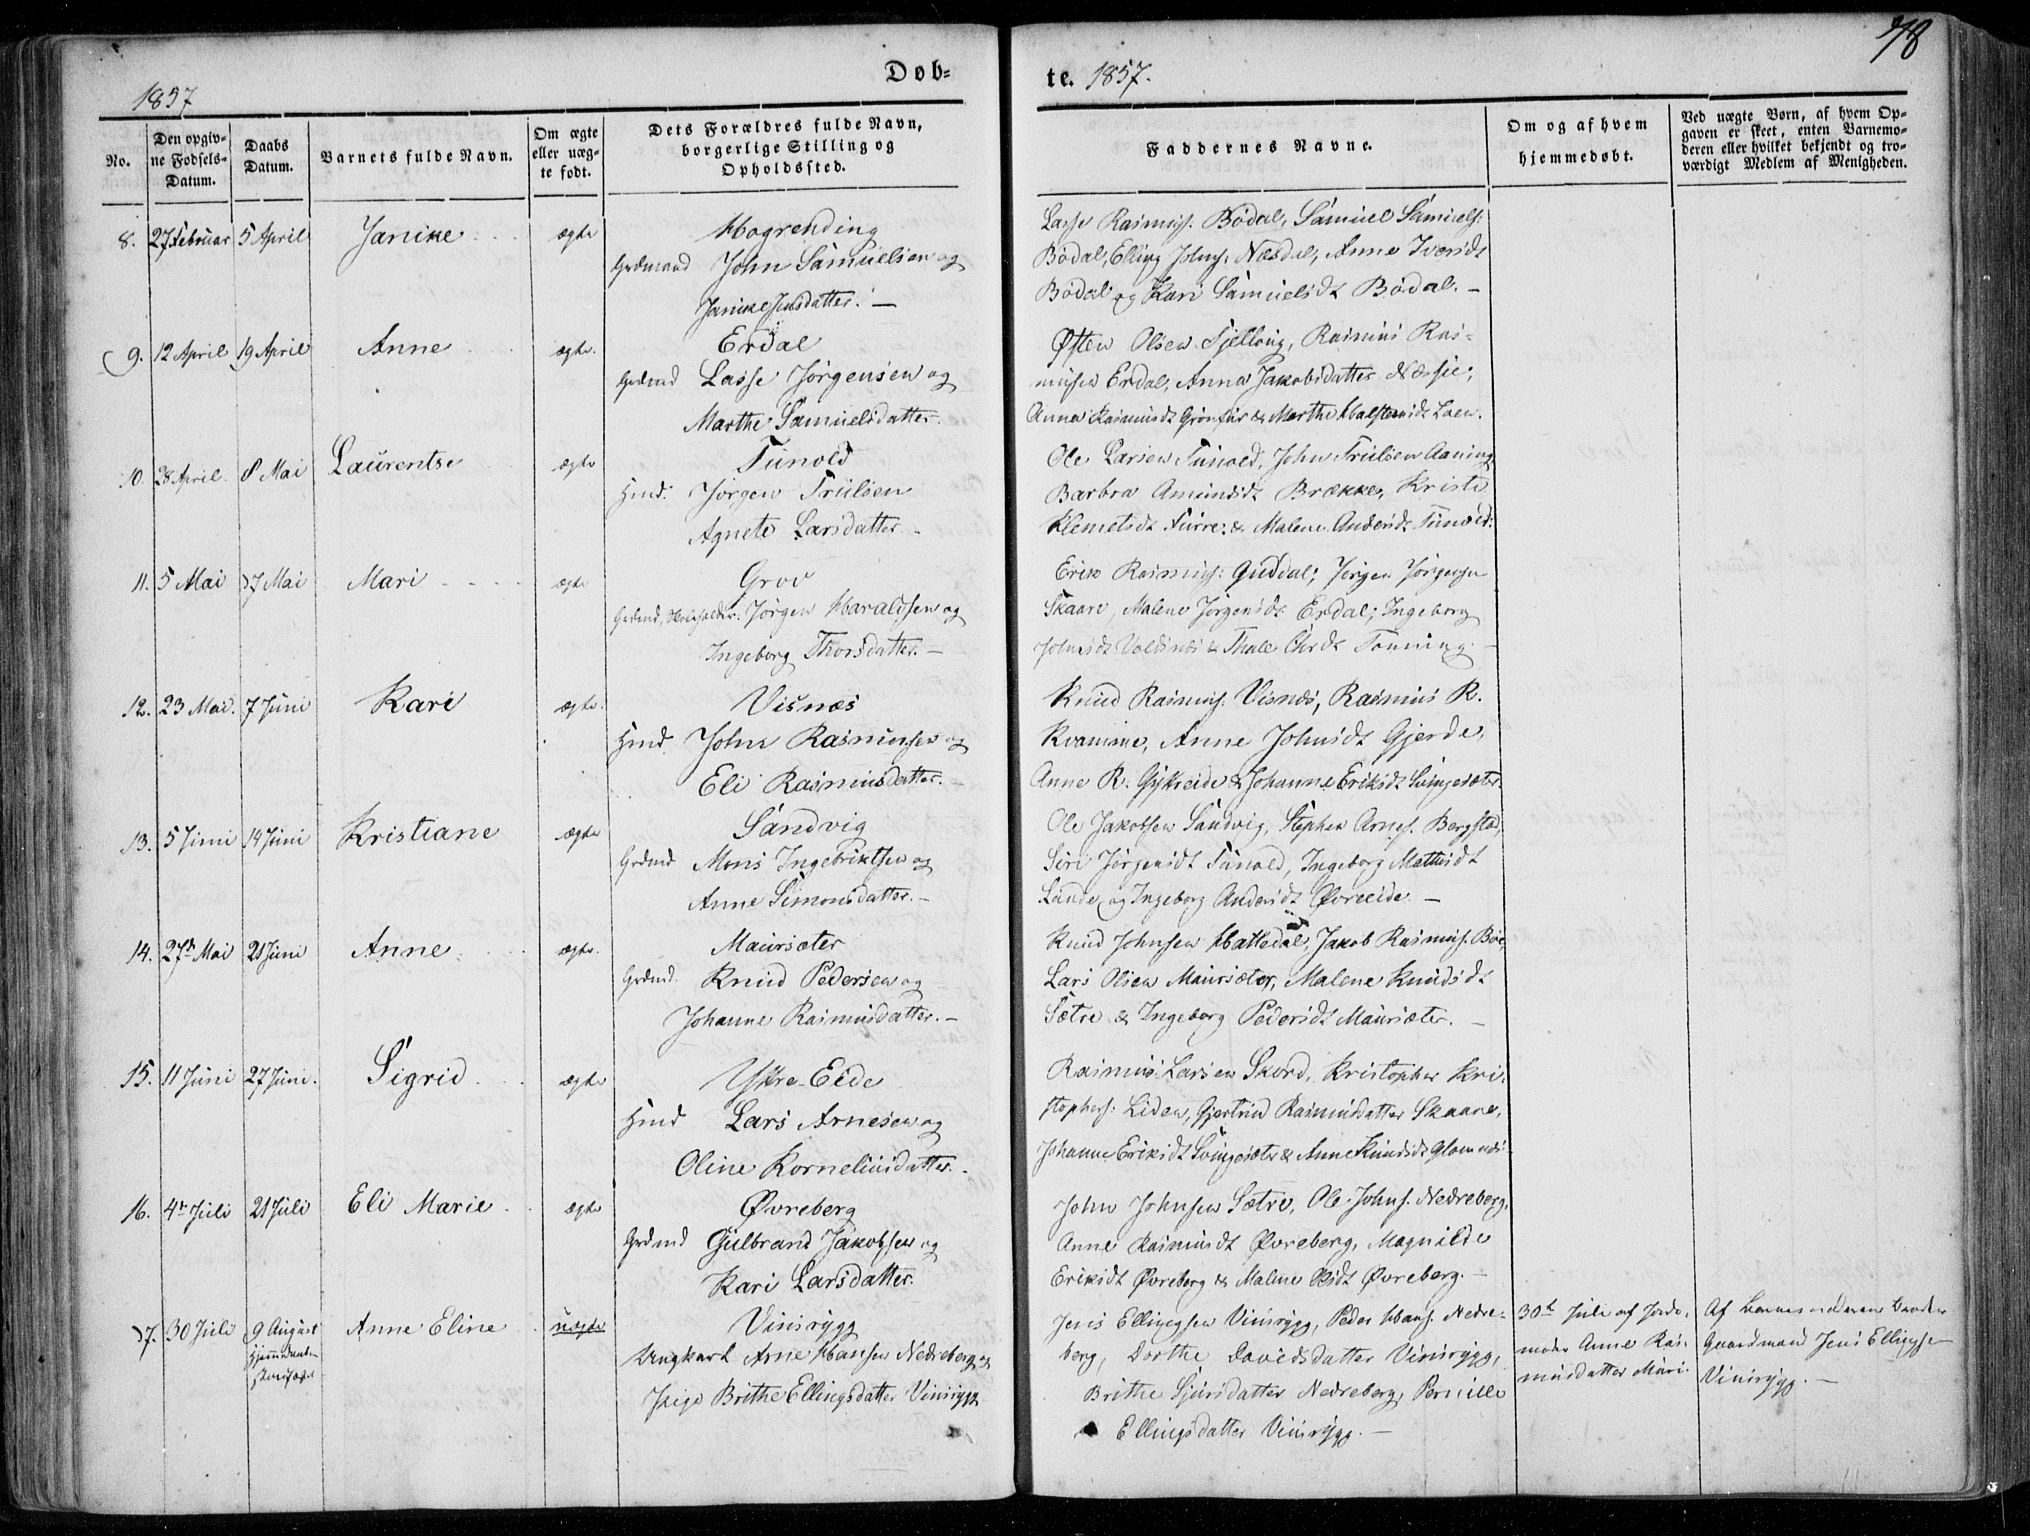 78
Døb=
te. 1857.
1857
No.
Den opgiv-
ne Fødsels-
Datum.
Daabs
Datum.
Barnets fulde Navn.
Om ægte
eller uæg-
te født.
Dets Forældres fulde Navn,
borgerlige Stilling og
Opholdssted.
Faddernes Navne.
Om og af hvem
hjemmedøbt.
Ved uægte Børn, af hvem Op-
gaven er skeet, enten Barnemo-
deren eller hvilket bekjendt og tro-
værdigt Medlem af Menigheden.
8. 27 Februar 5 April Janike ægte Hogrending
Grdmand John Samuelsen og
Janike Jensdatter. —
Lasse Rasmuss. Bødal, Samuel Samuels.
Bødal, Elling Johns. Næsdal, Anne Iversdt
Bødal og Kari Samuelsdt Bødal. —
9. 12 April 19 April Anne ægte. Erdal
Grdmd Lasse Jørgensen og
Marthe Samuelsdatter.
Østen Olsen Tjellaug, Rasmus Ras-
musen Erdal, Anna Jakobsdatter
Anna Rasmusdt & Marthe Halstensdt Loen.
10. 28 April. 8 Mai Laurentse ægte Tunold
Hmd. Jørgen Trulsen
Agnete Larsdatter. -
Ole Larsen Tunold, John Trulsen Aaning
Barbra Amundsdt Brække, Kristi
Klemetsdt Furre. & Malene Andersdt Tunold.
11. 5 Mai 17 Mai Mari ægte Grov
Grdmd, Jørgen Haraldsen og
Ingeborg Thorsdatter. —
Erik Rasmuss. Guddal; Jørgen Jørgensen
Skaare, Malene Jørgensdt Erdal; Ingeborg
Johnsdt Voldsnes & Thale Chrdt Tonning. -
12. 23 Mai. 7 Juni Kari ægte. Visnæs
Hmd. John Rasmussen og
Eli Rasmusdatter. —
Knud Rasmuss. Visnæs, Rasmus R.
Kvamme, Anne Johnsdt Gjerde,
Anne R. & Johanne Eriksdt Svingesæter.
13. 5 Juni 14 Juni Kristiane ægte Sandvig
Grdmd Mons Ingebriktsen og
Anne Simonsdatter. —
Ole Jakobsen Sandvig, Stephen Arnes. Bergstad,
Siri Jørgensdt Tunold, Ingeborg Mathisdt
Lunde og Ingeborg Andersdt Øvreeide. —
14. 27de Mai 21 Juni Anne ægte. Maursæter
Grdmd. Knud Pedersen og
Johanne Rasmusdatter. —
Knud Johnsen Hattedal, Jakob Rasmuss. Bøe
Lars Olsen Maursæter, Malene Knudsdt
Sætre & Ingeborg Pedersdt Maursæter. —
15. 11 Juni 27 Juni. Sigrid ægte Ytre-Eide
Hmd Lars Arnesen og
Oline Korneliusdatter. -
Rasmus Larsen Skord, Kristopher Kri-
stophers. Liden, Gjertrud Rasmusdatter Skaare,
Johanne Eriksdt Svingesæter & Anne Knudsdt Glomnes
16. 4de Juli 21 Juli Eli Marie ægte Øvreberg
Grdmd Gulbrand Jakobsen og
Kari Larsdatter.
John Johnsen Sætre, Ole Johns. Nedreberg,
Anne Rasmusdt Øvreberg, Magnilde
Eriksdt Øvreberg & Malene Øvreberg. —
17. 30 Juli 9 August
Anne Eline uægte Vinsrygg
Ungkarl Arne Hansen Nedreberg og
Pige Brithe Ellingsdatter Vinsrygg
Jens Ellingsen Vinsrygg, Peder Hans. Nedre-
berg, Dorthe Davidsdatter Vinsrygg,
Brithe Sjursdatter Nedreberg, Pernille
Ellingsdatter Vinsrygg. —
30te Juli af Jorde-
moder Anne Ras-
musdatter Muri
Af Barnemoderens Broder
Gaardmand Jens Ellingsen
Vinsrygg. —